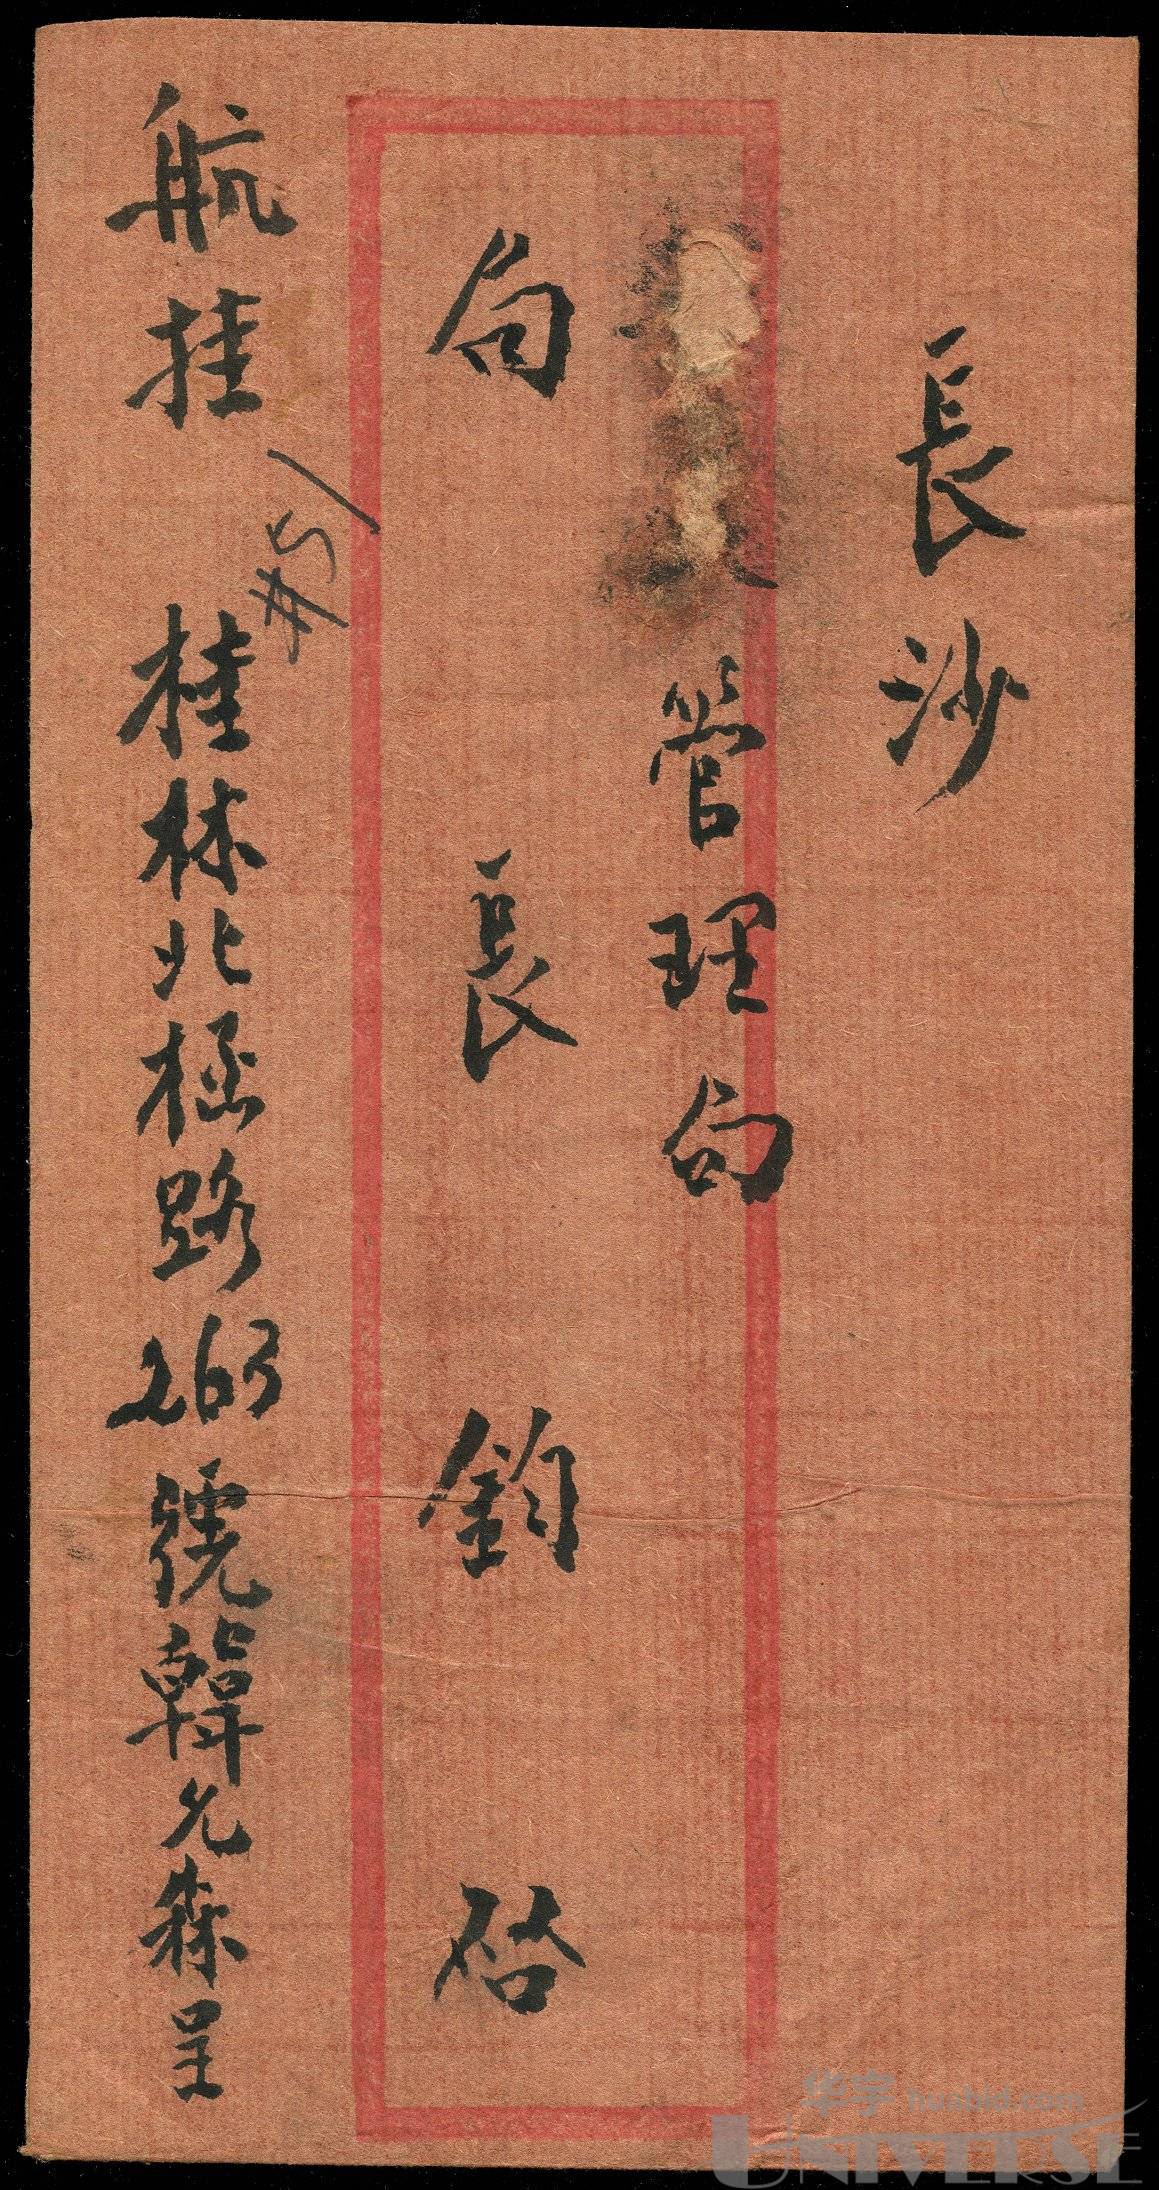 長沙
管理局
局長鈞啓
航挂
桂林北極路263號韓允森呈
华宇 huabid.com
UNIVERSE